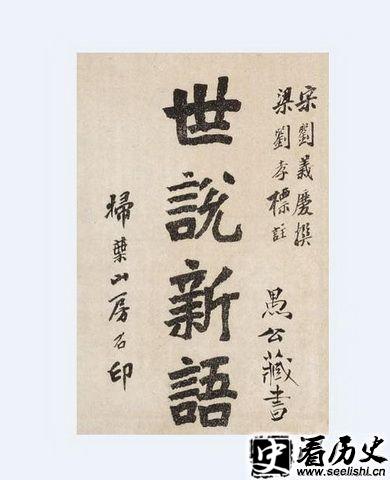 宋劉義慶撰
梁劉孝標註
愚公藏書
世說新語
掃葉山房石印
史看历史
www.seelishi.cn